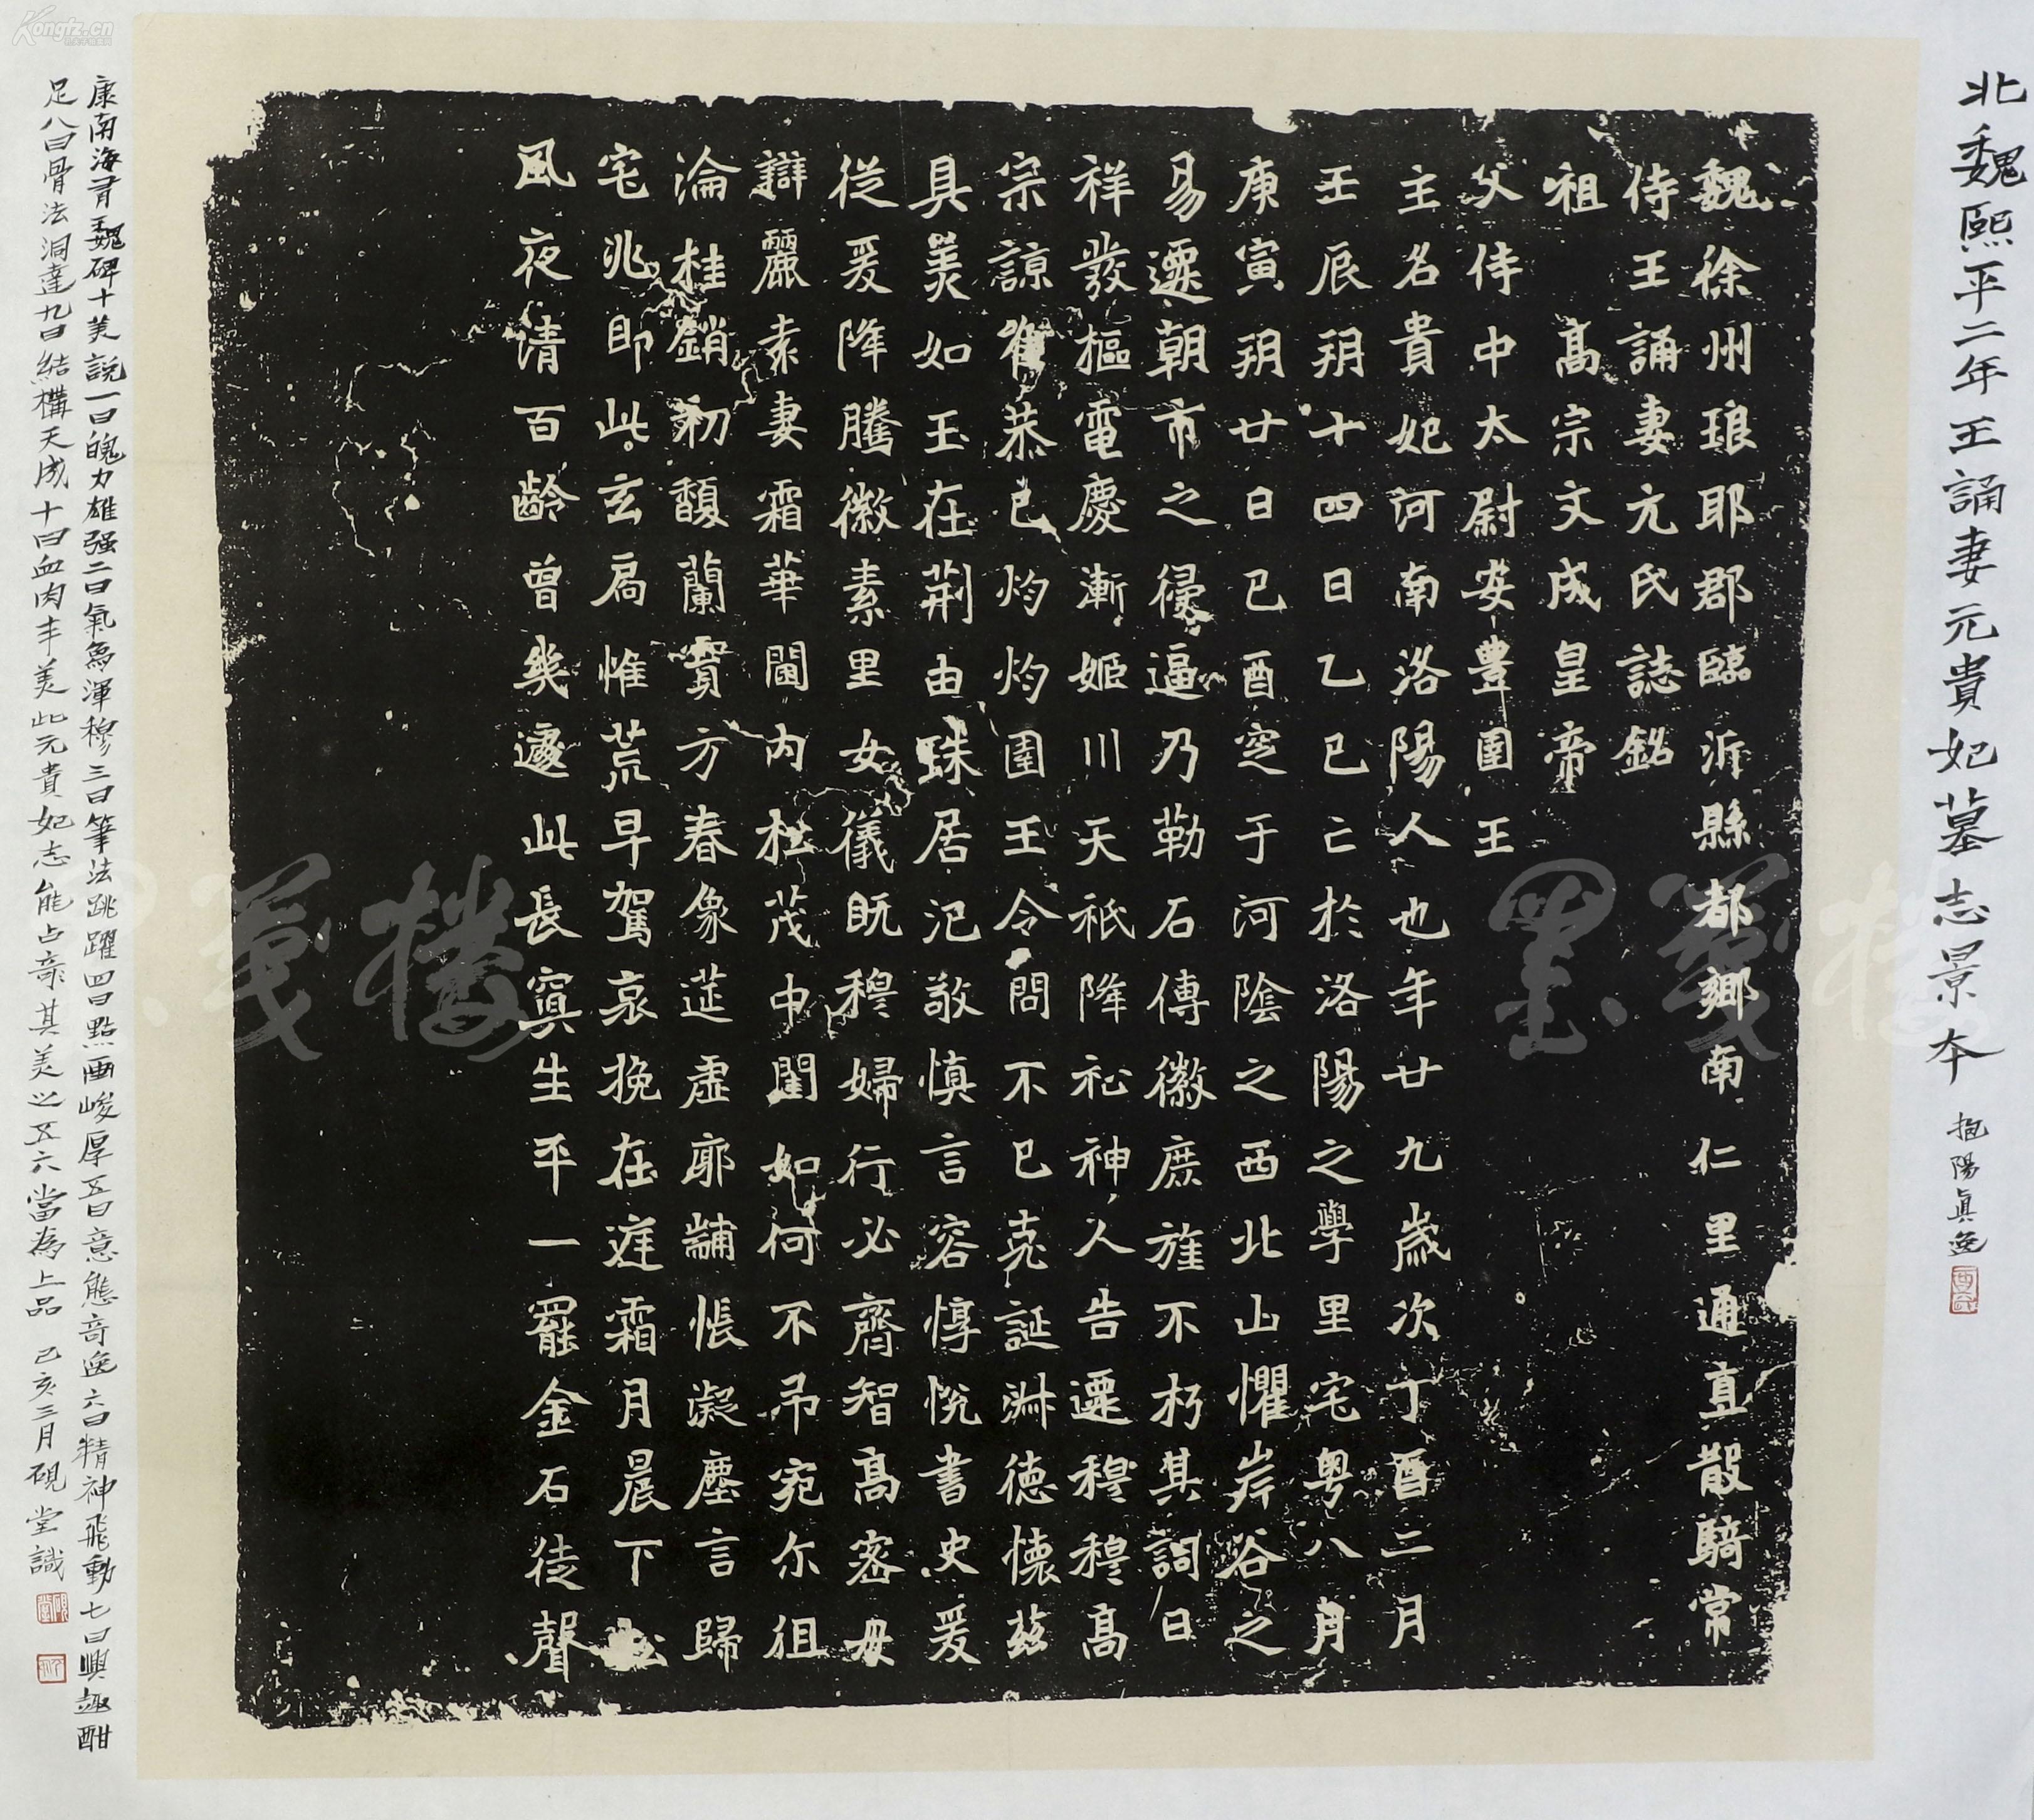 北魏熙平二年王誦妻元貴妃墓志景本 抱陽真逸
魏徐州琅耶郡臨沂縣都鄉南仁里通直散騎常
侍王誦妻元氏誌銘
祖高宗文成皇帝
父侍中太尉安豊圉王
主名貴妃河南洛陽人也年廿九歲次丁酉二月
壬辰玥十四日乙巳亡於洛陽之學里宅粵八月
庚寅玥廿日己酉窆于河陰之西北山懼岸谷之
易遷朝市之侵逼乃勒石傳徽庶旌不朽其詞曰
祥發樞電慶漸姬川天祇降祉神人告遷穆穆高
宗諒唯恭已灼灼圉王令問不已克誕淋德懷茲
具美如玉在荆由珠居汜敬慎言容惇悅書史爰
從爰降騰徽素里女儀既穆婦行必齊智高密母
辯麗袁妻霜華閫内松茂中閨如何不弔宛尔徂
淪桂銷初馥蘭實方春象莚虛廓黼悵凝塵言歸
宅兆即此玄扃惟荒早駕哀挽在莚霜月晨下松
風夜清百齡曾幾遽此長寘生平一罷金石徒聲
康南海有魏碑十美說一曰魄力雄强二曰氣象渾穆三曰筆法跳躍四曰點画峻厚五曰意態奇逸六曰精神飛動七曰興趣酣
足八曰骨法洞達九曰結構天成十曰血肉丰美此元貴妃志能占竟其美之五六當為上品 己亥三月硯堂識
Kongfz.cn
墨箋樓
墨箋樓